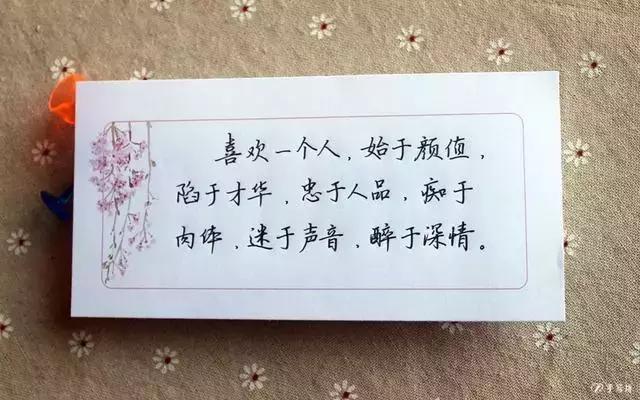 喜欢一个人，始于颜值，
陷于才华，忠于人品，痴于
肉体，迷于声音，醉于深情。